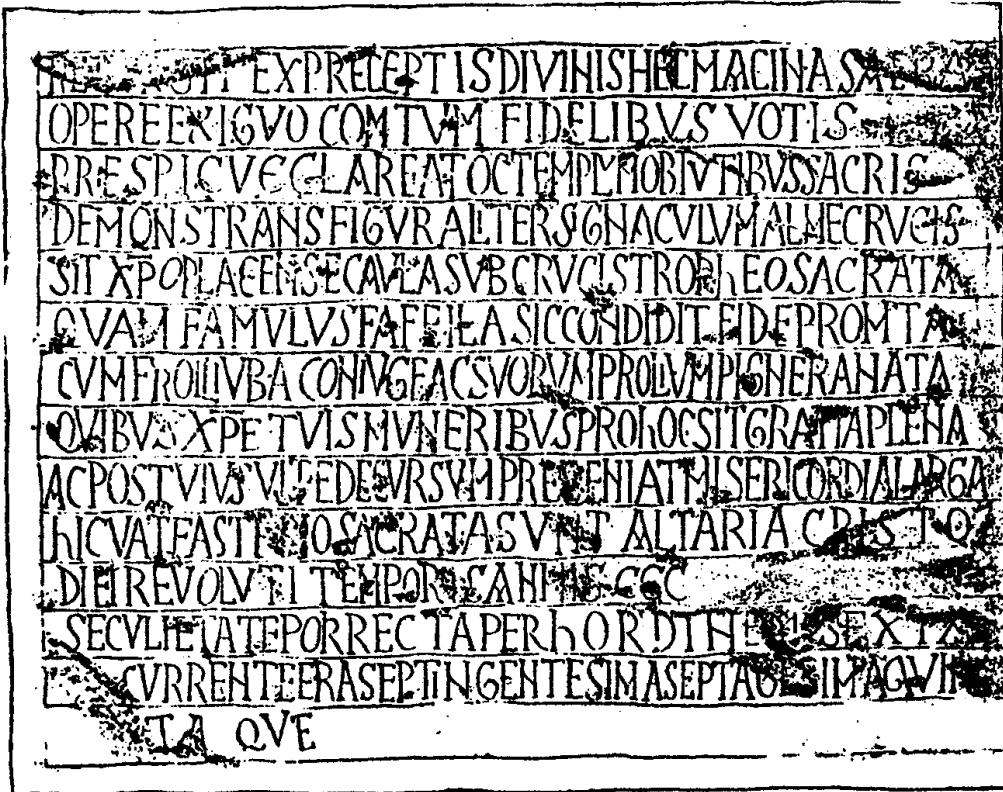 EX PRECEPTIS DIVINIS HEC MACINA SACRA
OPERE EXIGVO COMTVM FIDELIBVS VOTIS
PRESPICVE CLAREAT OC TEMPLVM OBTVTIBVS SACRIS
DEMONSTRANS FIGVRALITER SIGNACVLVM ALME CRVCIS
SIT XPO PLACENS EC AVLA SVB CRVCIS TROPhEO SACRATA
QVAM FAMVLVS FAFEILA SIC CONDIDIT FIDE PROMTA
CVM FROILIVBA CONIVGE AC SVORVM PROLIVM PIGNERA NATA
QVIBVS XPE TVIS MVNERIBVS PRO hOC SIT GRATIA PLENA
AC POST VIVS VITE DECVRSVM PREVENIAT MISERICORDIA LARGA
hIC VATE ASTERIO SACRATA SVNT ALTARIA CRISTO
DIEI REVOLVTI TEMPORIS ANNI CCC
SECVLI ETATE PORRECTA PER hORDINEM SEXTA
CVRRENTE ERA SEPTINGENTESIMA SEPTAGESIMA QVIN
TA QVE